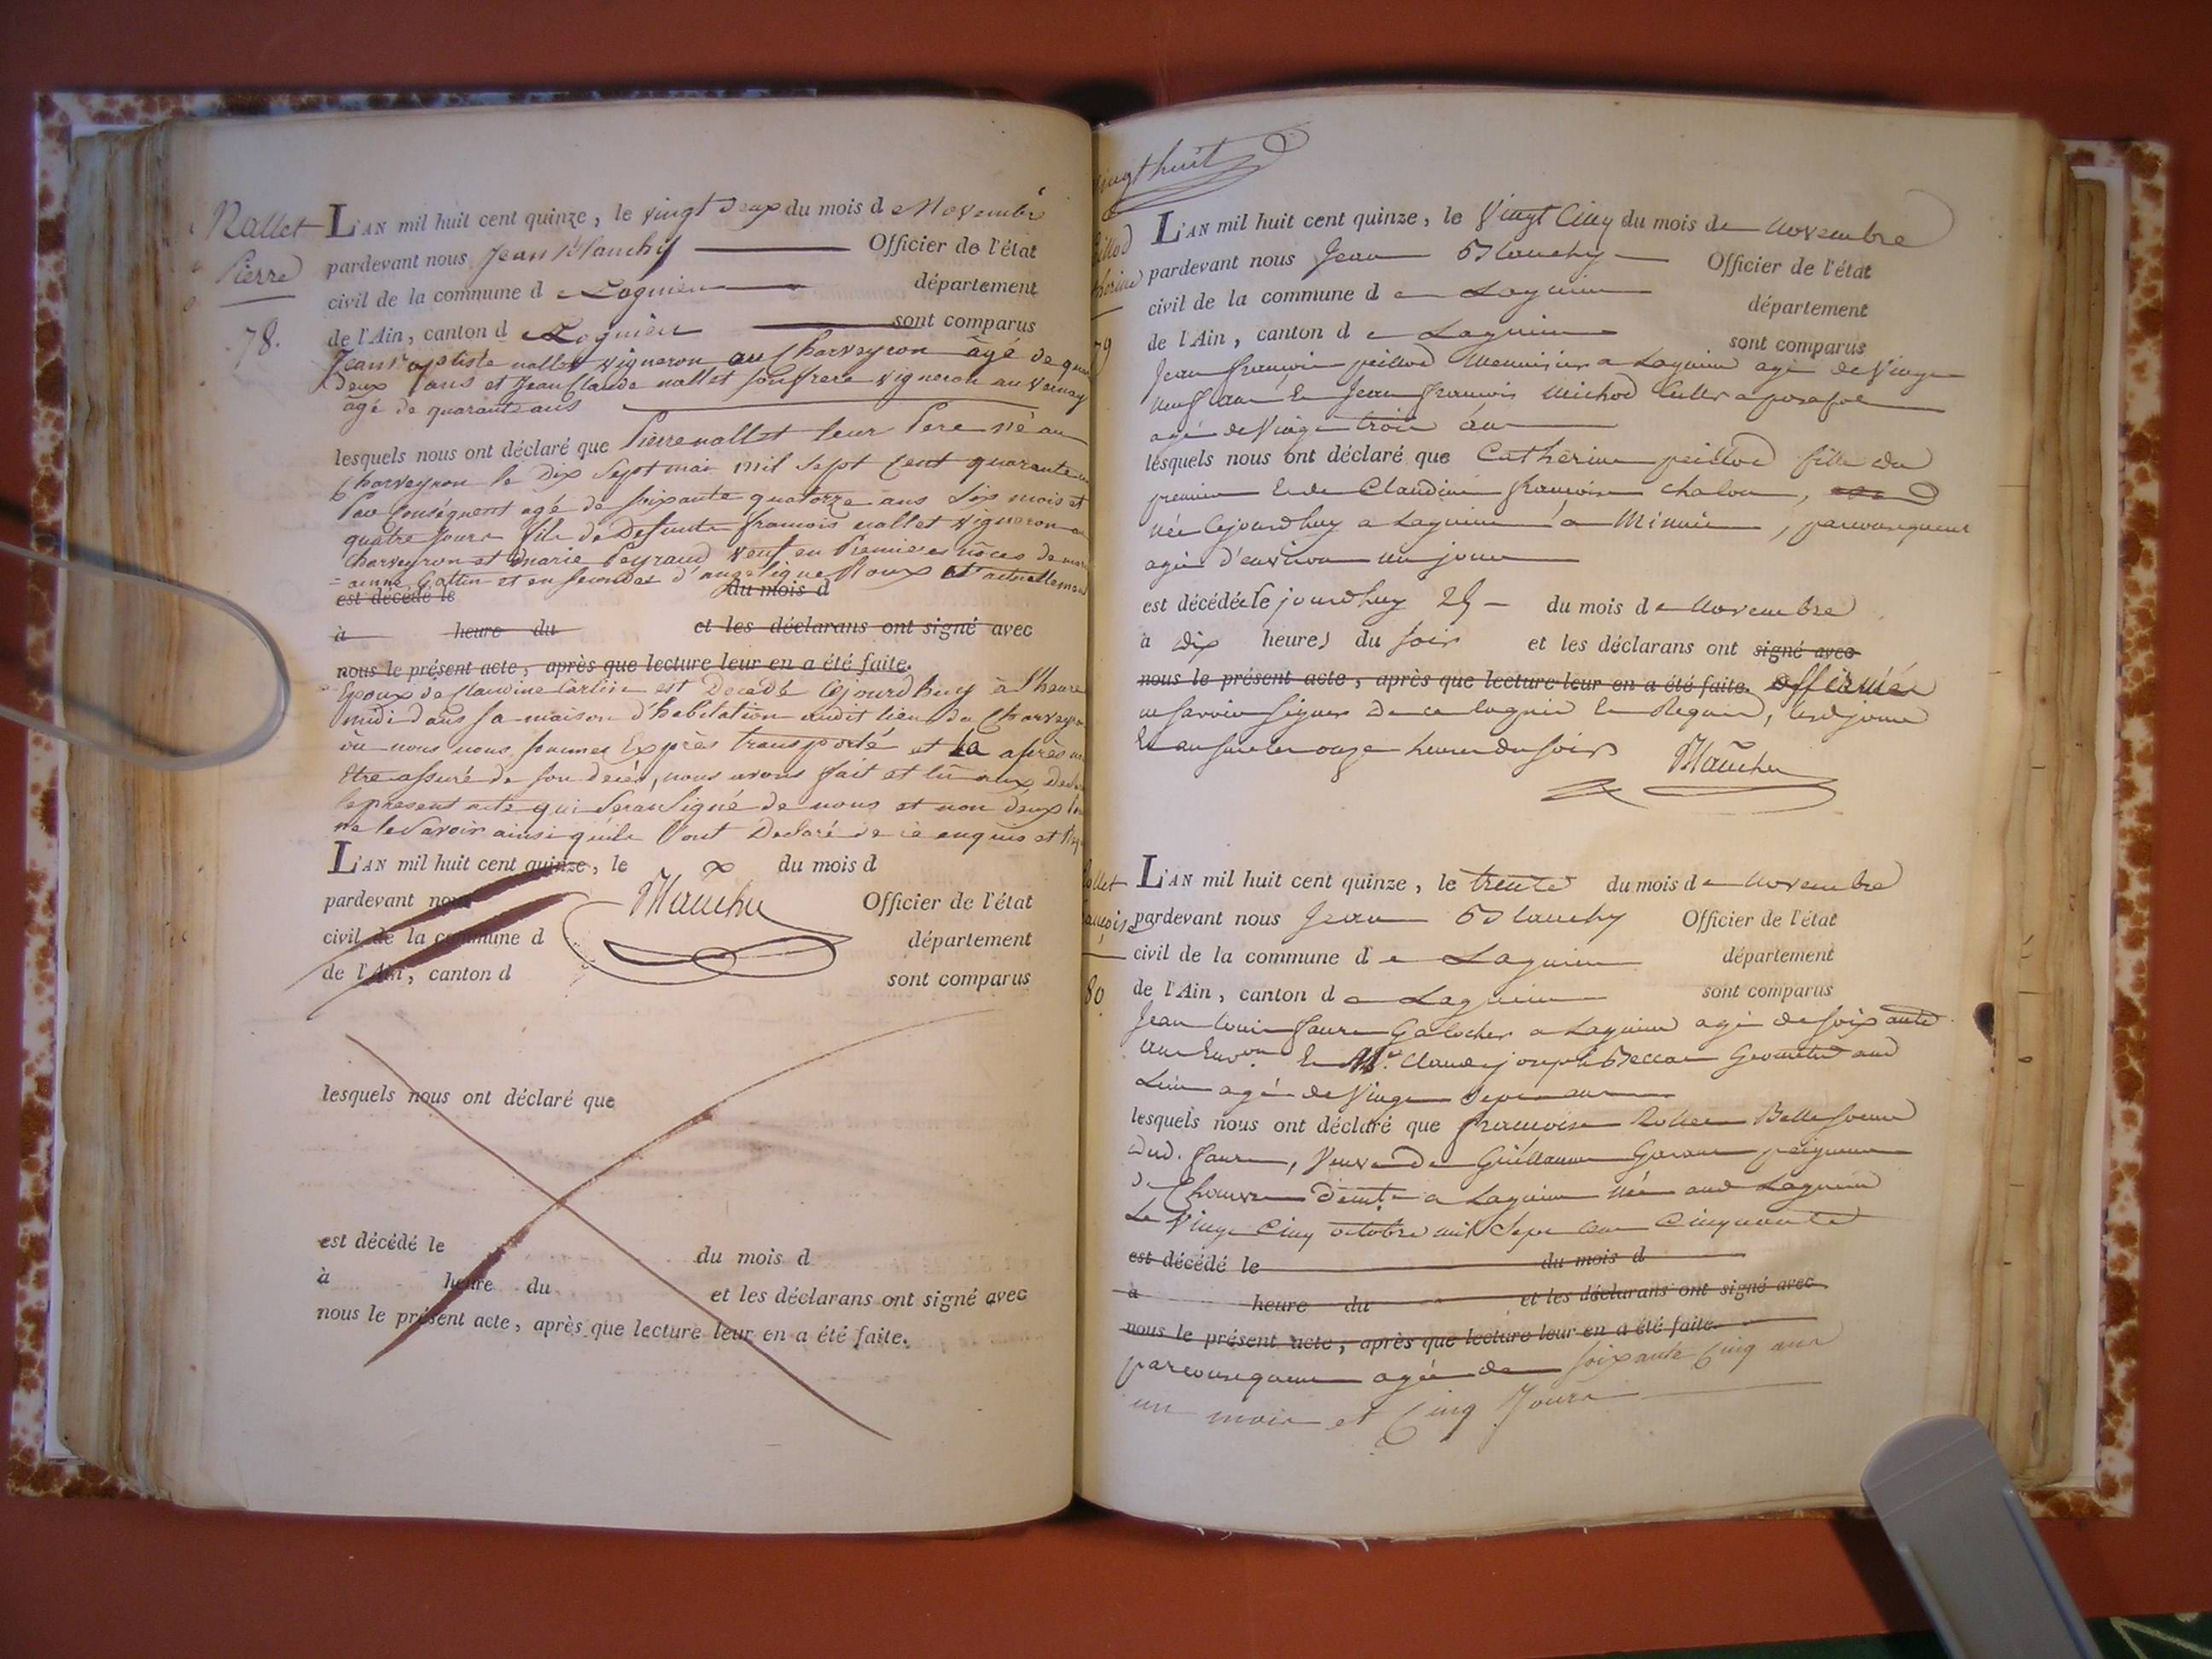 Nallet
Pierre
78.
L'AN mil huit cent quinze, le vingt deux du mois de Novembre
pardevant nous Jean Blanchy Officier de l'état
civil de la commune de Lagnieu département
de l'Ain, canton de Lagnieu sont comparus
Jean Baptiste nallet vigneron au Charveyron âgé de
deux ans et Jean Claude nallet son frere vigneron au Vernay
âgé de quarante ans
lesquels nous ont déclaré que Pierre nallet leur Pere né au
Charveyron le Dix Sept mai mil sept Cent quarante un
Par Conséquent agé de soixante quatorze ans Six mois et
quatre Jours fils de Defunts francois nallet vigneron a
Charveyron et marie Peyraud Veuf en Premieres nôces de
anne Gallin et en secondes d'angelique Roux et actuellement
est décédé le du mois d
à heure du et les déclarans ont signé avec
nous le présent acte, après que lecture leur en a été faite.
Epoux de Claudine est Decedé Cejourdhuy à l'heure
midi dans sa maison d'habitation audit lieu du Charveyron
où nous nous sommes Exprès transporté et La après
Etre assuré de son decès, nous avons fait et lu aux
le present acte qui Sera Signé de nous et non d'eux
ne le Savoir ainsi qu'ils l'ont Declaré de ce enquis et
L'AN mil huit cent quinze, le du mois d
pardevant nous Blanchy Officier de l'état
civil de la commune d département
de l'Ain, canton d sont comparus
lesquels nous ont déclaré que
est décédé le du mois d
à heure du et les déclarans ont signé avec
nous le présent acte, après que lecture leur en a été faite.
vingt huit
79
L'AN mil huit cent quinze, le Vingt Cinq du mois de Novembre
pardevant nous Jean Blanchy Officier de l'état
civil de la commune de Lagnieu département
de l'Ain, canton de Lagnieu sont comparus
Jean françois peillod Menuisier a Lagnieu agé de Vingt
neuf ans & Jean françois Michod Cultr a
agé de Vingt trois ans
lesquels nous ont déclaré que Catherine peillod fille du
premier & de Claudine françoise chalon,
née Cejourdhuy a Lagnieu a Minuit, parconsequent
agée d'environ un jour
est décédée le jourdhuy 25 du mois de Novembre
à dix heures du soir et les déclarans ont signé avec
nous le présent acte, après que lecture leur en a été faite. affirmé
ne savoir signer de ce enquis & Requis, lesd jour
& an sur les onze heures du soir
Blanchy
80
L'AN mil huit cent quinze, le trente du mois de Novembre
pardevant nous Jean Blanchy Officier de l'état
civil de la commune de Lagnieu département
de l'Ain, canton de Lagnieu sont comparus
Jean Louis faure Galocher a Lagnieu agé de soixante
ans Envon & Mr. Claude joseph Geometre aud
Lieu agé de Vingt Sept ans
lesquels nous ont déclaré que francoise Belle Soeur
dud. faure, Veuve de Guillaume peigneur
de Chanvre demte a Lagnieu née aud Lagnieu
Le Vingt Cinq octobre mil Sept Cent Cinquante
est décédé le du mois d
à heure du et les déclarans ont signé avec
nous le présent acte, après que lecture leur en a été faite.
parconsequent agée de soixante Cinq ans
un mois et Cinq Jours